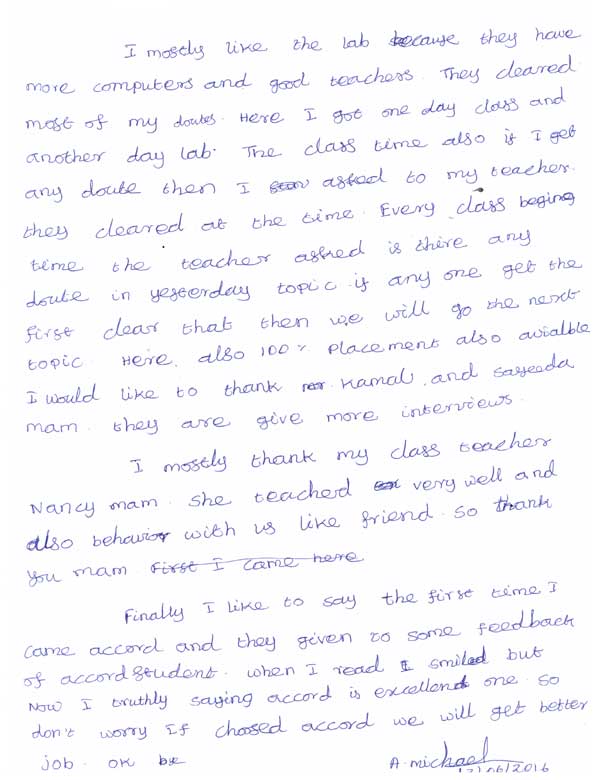 I mostly like the lab because they have
more computers and good teachers. They cleared
most of my doutes. Here I got one day class and
another day lab. The class time also if I get
any doute then I asked to my teacher.
they cleared at the time. Every class beging
time the teacher asked is there any
doute in yesterday topic if any one get the
first clear that then we will go the next
topic. Here, also 100% placement also avialble
I would like to thank mr. Kamal, and Sayeeda
mam. they are give more interviews.
I mostly thank my class teacher
Nancy mam. She teached very well and
also behavior with us like friend. So thank
you mam First I came here
Finally I like to say the first time I
came accord and they given to some feedback
of accord student. when I read I smiled but
Now I truthly saying accord is excellend one. so
don't worry If choosed accord we will get better
job. ok be
A. michael
12/06/2016